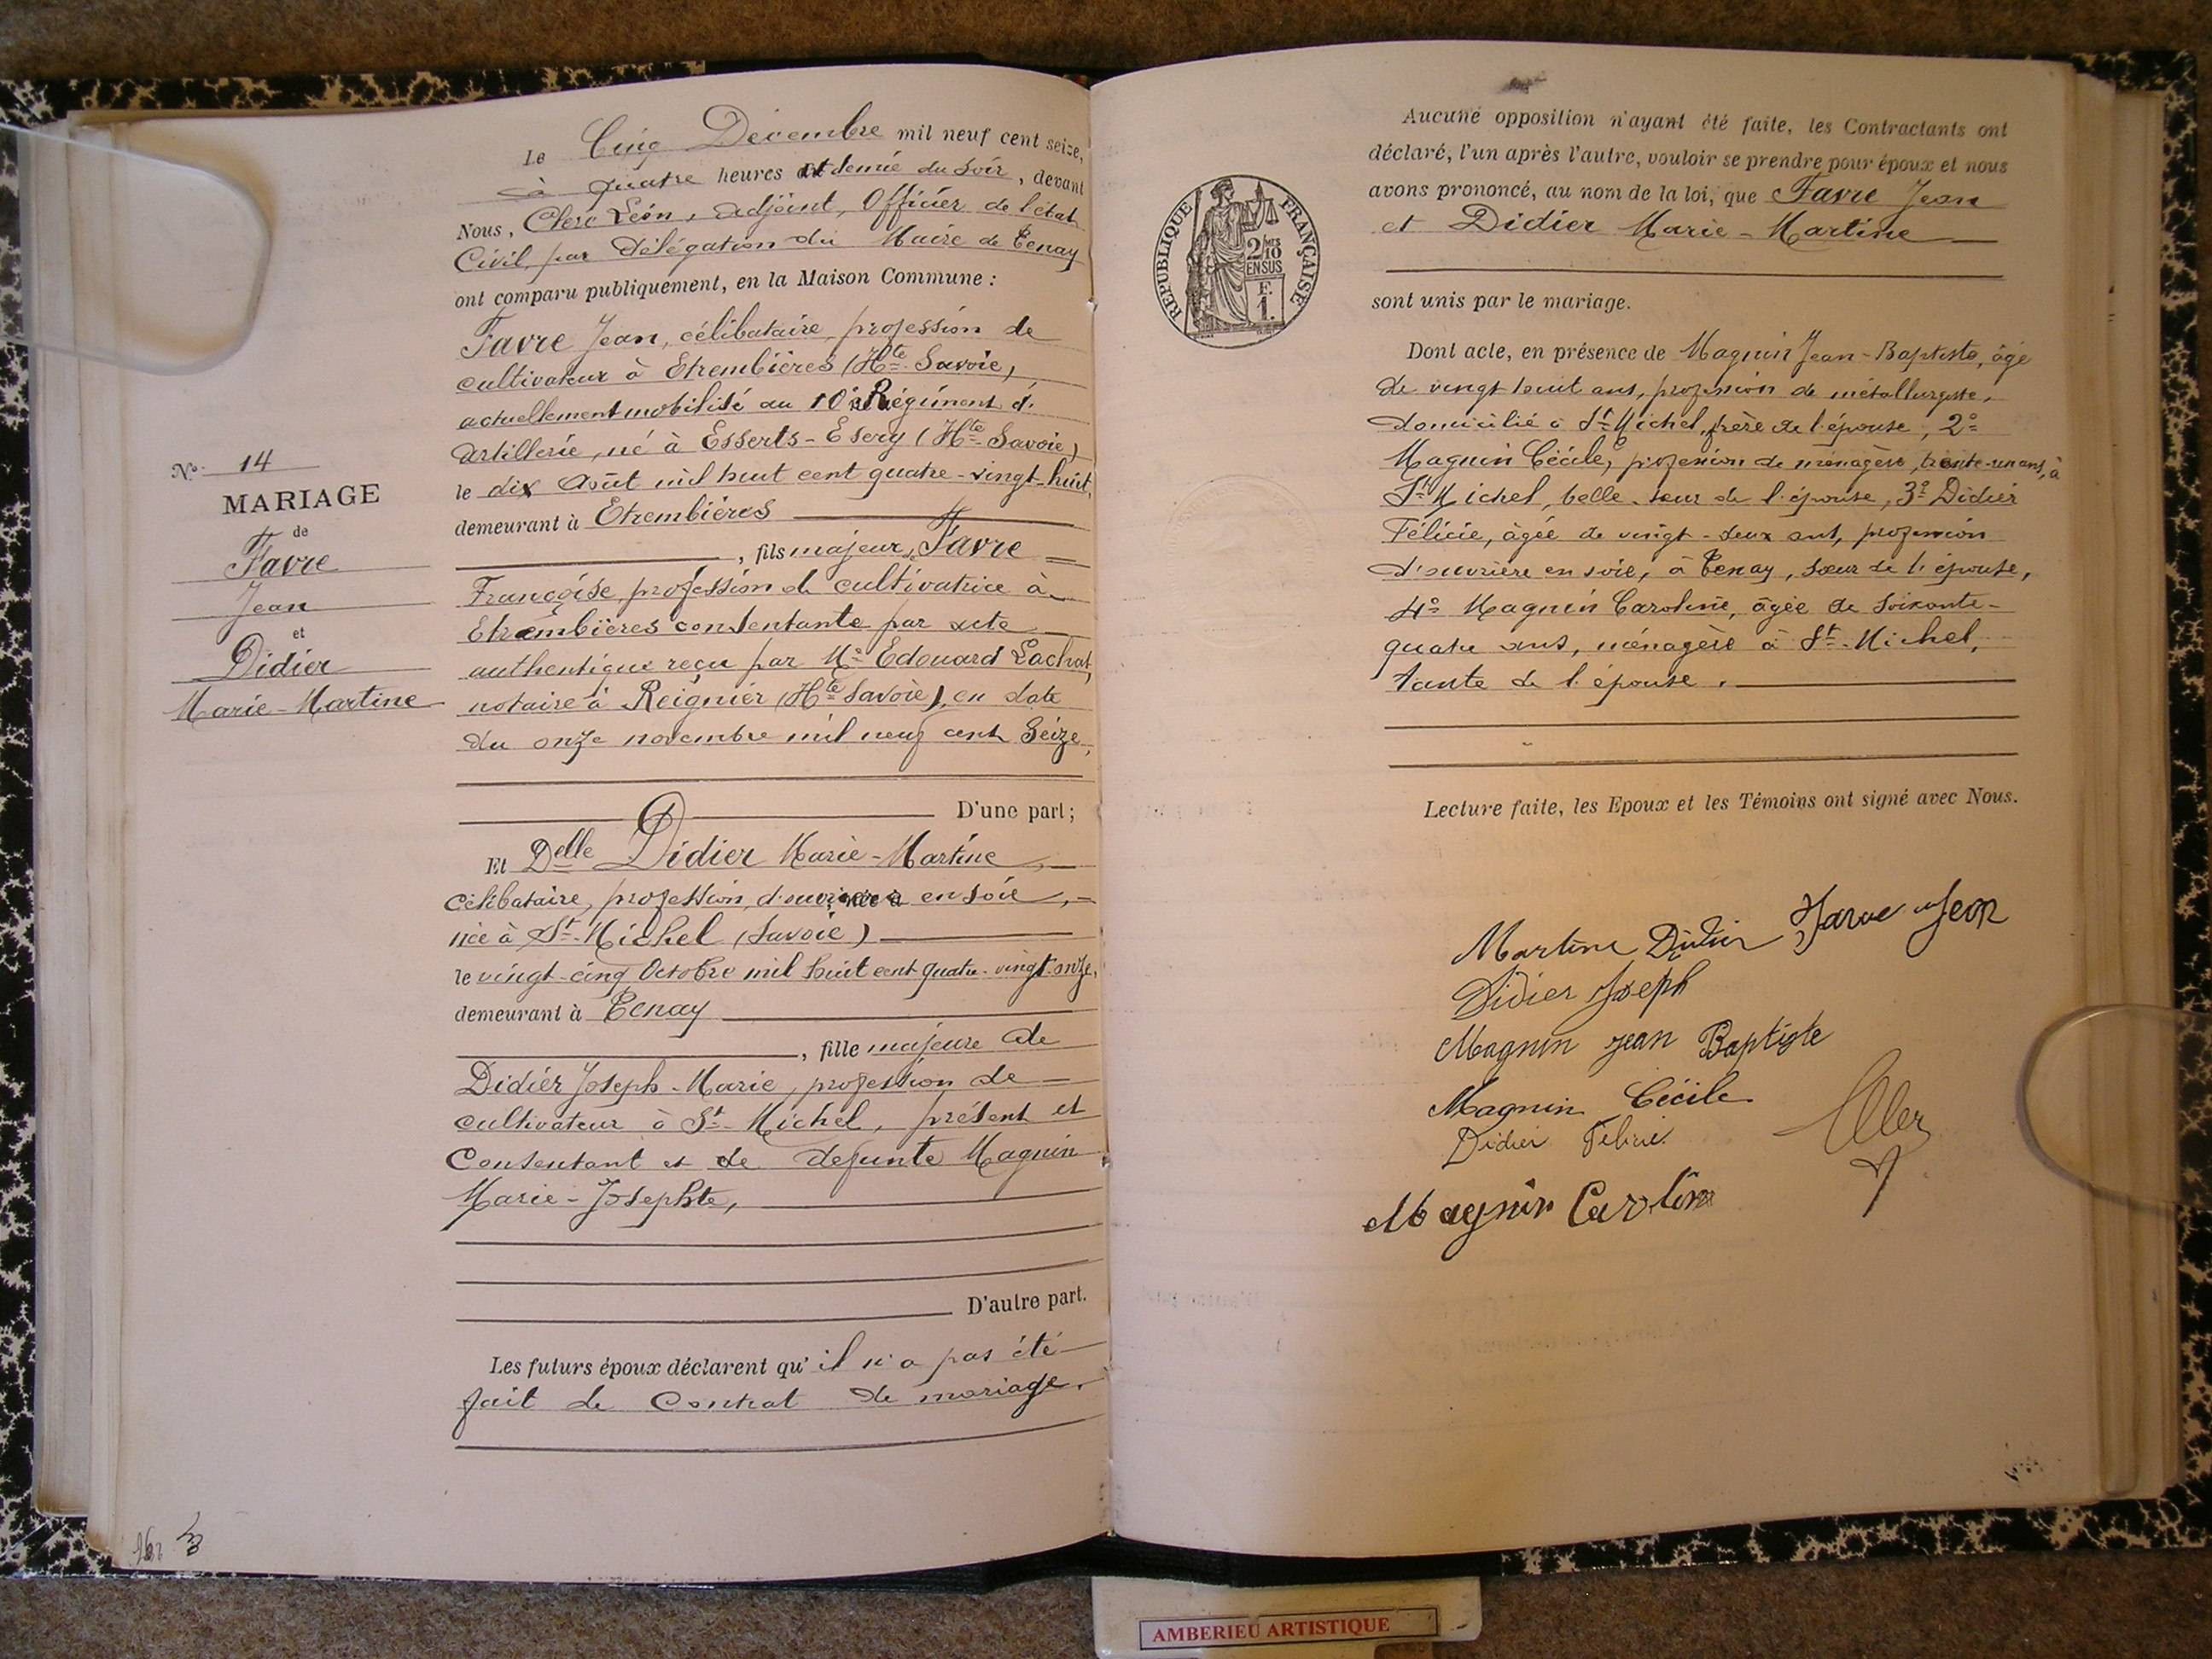 Le Cinq Décembre mil neuf cent seize,
à quatre heures et demie du soir, devant
Nous, Clerc Léon, adjoint, Officier de l'état
Civil, par délégation du Maire de Tenay
ont comparu publiquement, en la Maison Commune :
Favre Jean, célibataire, profession de
cultivateur à Etrembières (Hte Savoie)
actuellement mobilisé au 10e Régiment d'
Artillerie, né à Esserts-Esery (Hte Savoie)
le dix Août mil huit cent quatre-vingt-huit,
demeurant à Etrembières
, fils majeur de Favre
Françoise, profession de cultivatrice à
Etrembières consentante par acte
authentique reçu par Me Edouard Lachat,
notaire à Reignier (Hte Savoie), en date
du onze novembre mil neuf cent Seize,
D'une part ;
Et Delle Didier Marie-Martine,
célibataire, profession d'ouvrière en soie,
née à St-Michel (Savoie)
le vingt-cinq Octobre mil huit cent quatre-vingt-onze,
demeurant à Tenay
, fille majeure de
Didier Joseph-Marie, profession de
cultivateur à St-Michel, présent et
Consentant et de defunte Magnin
Marie-Josephte,
D'autre part.
Les futurs époux déclarent qu'il n'a pas été
fait de Contrat de mariage.
No 14
MARIAGE
de
Favre
Jean
et
Didier
Marie-Martine
RÉPUBLIQUE FRANÇAISE
2/10MES
EN SUS
F.
1.
Aucune opposition n'ayant été faite, les Contractants ont
déclaré, l'un après l'autre, vouloir se prendre pour époux et nous
avons prononcé, au nom de la loi, que Favre Jean
et Didier Marie-Martine
sont unis par le mariage.
Dont acte, en présence de Magnin Jean-Baptiste, âgé
de vingt huit ans, profession de métallurgiste,
domicilié à St-Michel, frère de l'épouse, 2°
Magnin Cécile, profession de ménagère, trente-un ans, à
St-Michel, belle-sœur de l'épouse, 3° Didier
Félicie, âgée de vingt-deux ans, profession
d'ouvrière en soie, à Tenay, sœur de l'épouse,
4° Magnin Caroline, âgée de soixante-
quatre ans, ménagère à St-Michel,
tante de l'épouse.
Lecture faite, les Epoux et les Témoins ont signé avec Nous.
Martine Didier Favre Jean
Didier Joseph
Magnin Jean Baptiste
Magnin Cécile
Didier Félicie
Magnin Caroline
AMBERIEU ARTISTIQUE